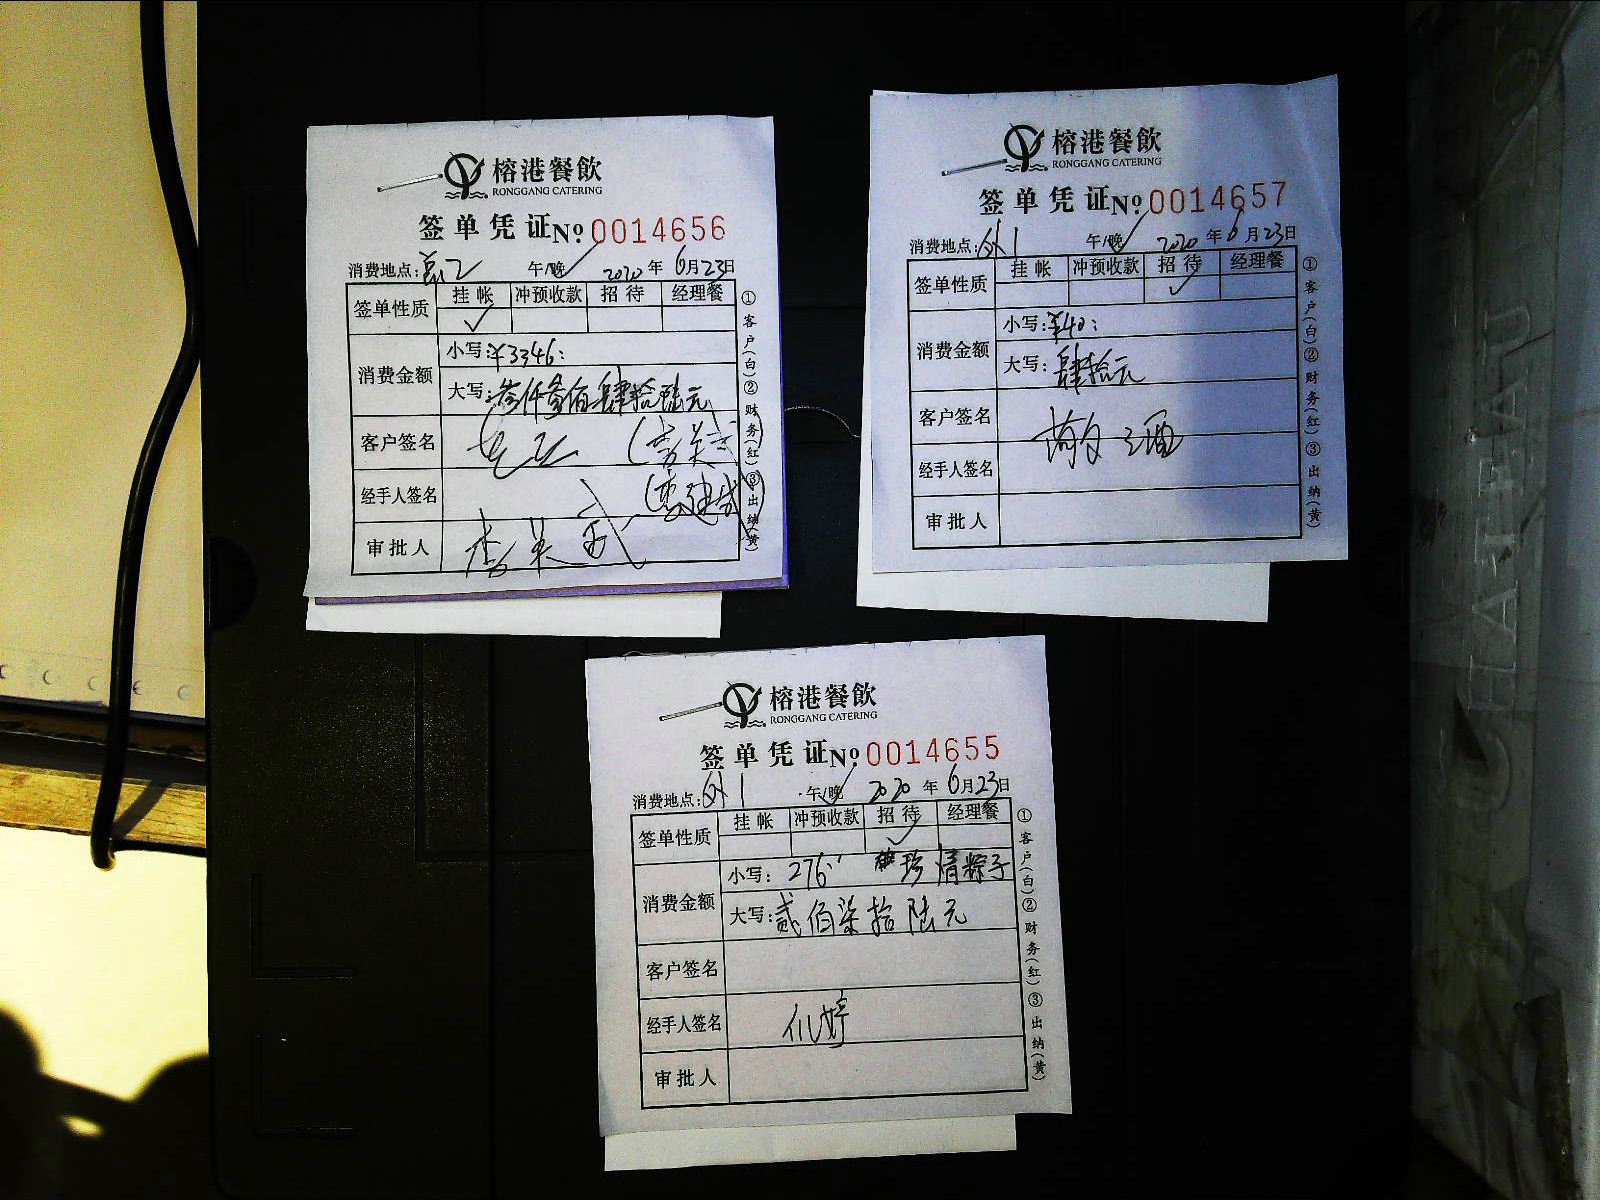 榕港餐飲
RONGGANG CATERING
签单凭证 No 0014656
消费地点: 午/晚 2020年6月23日
签单性质 挂帐 冲预收款 招待 经理餐
消费金额 小写:¥3346:
大写:叁仟叁佰肆拾陆元
客户签名
经手人签名
审批人
①客户(白)②财务(红)③出纳(黄)
榕港餐飲
RONGGANG CATERING
签单凭证 No 0014657
消费地点:外1 午/晚 2020年6月23日
签单性质 挂帐 冲预收款 招待 经理餐
消费金额 小写:¥40:
大写:肆拾元
客户签名
经手人签名
审批人
①客户(白)②财务(红)③出纳(黄)
榕港餐飲
RONGGANG CATERING
签单凭证 No 0014655
消费地点:外1 午/晚 2020年6月23日
签单性质 挂帐 冲预收款 招待 经理餐
消费金额 小写: 276 粽子
大写:贰佰柒拾陆元
客户签名
经手人签名
审批人
①客户(白)②财务(红)③出纳(黄)